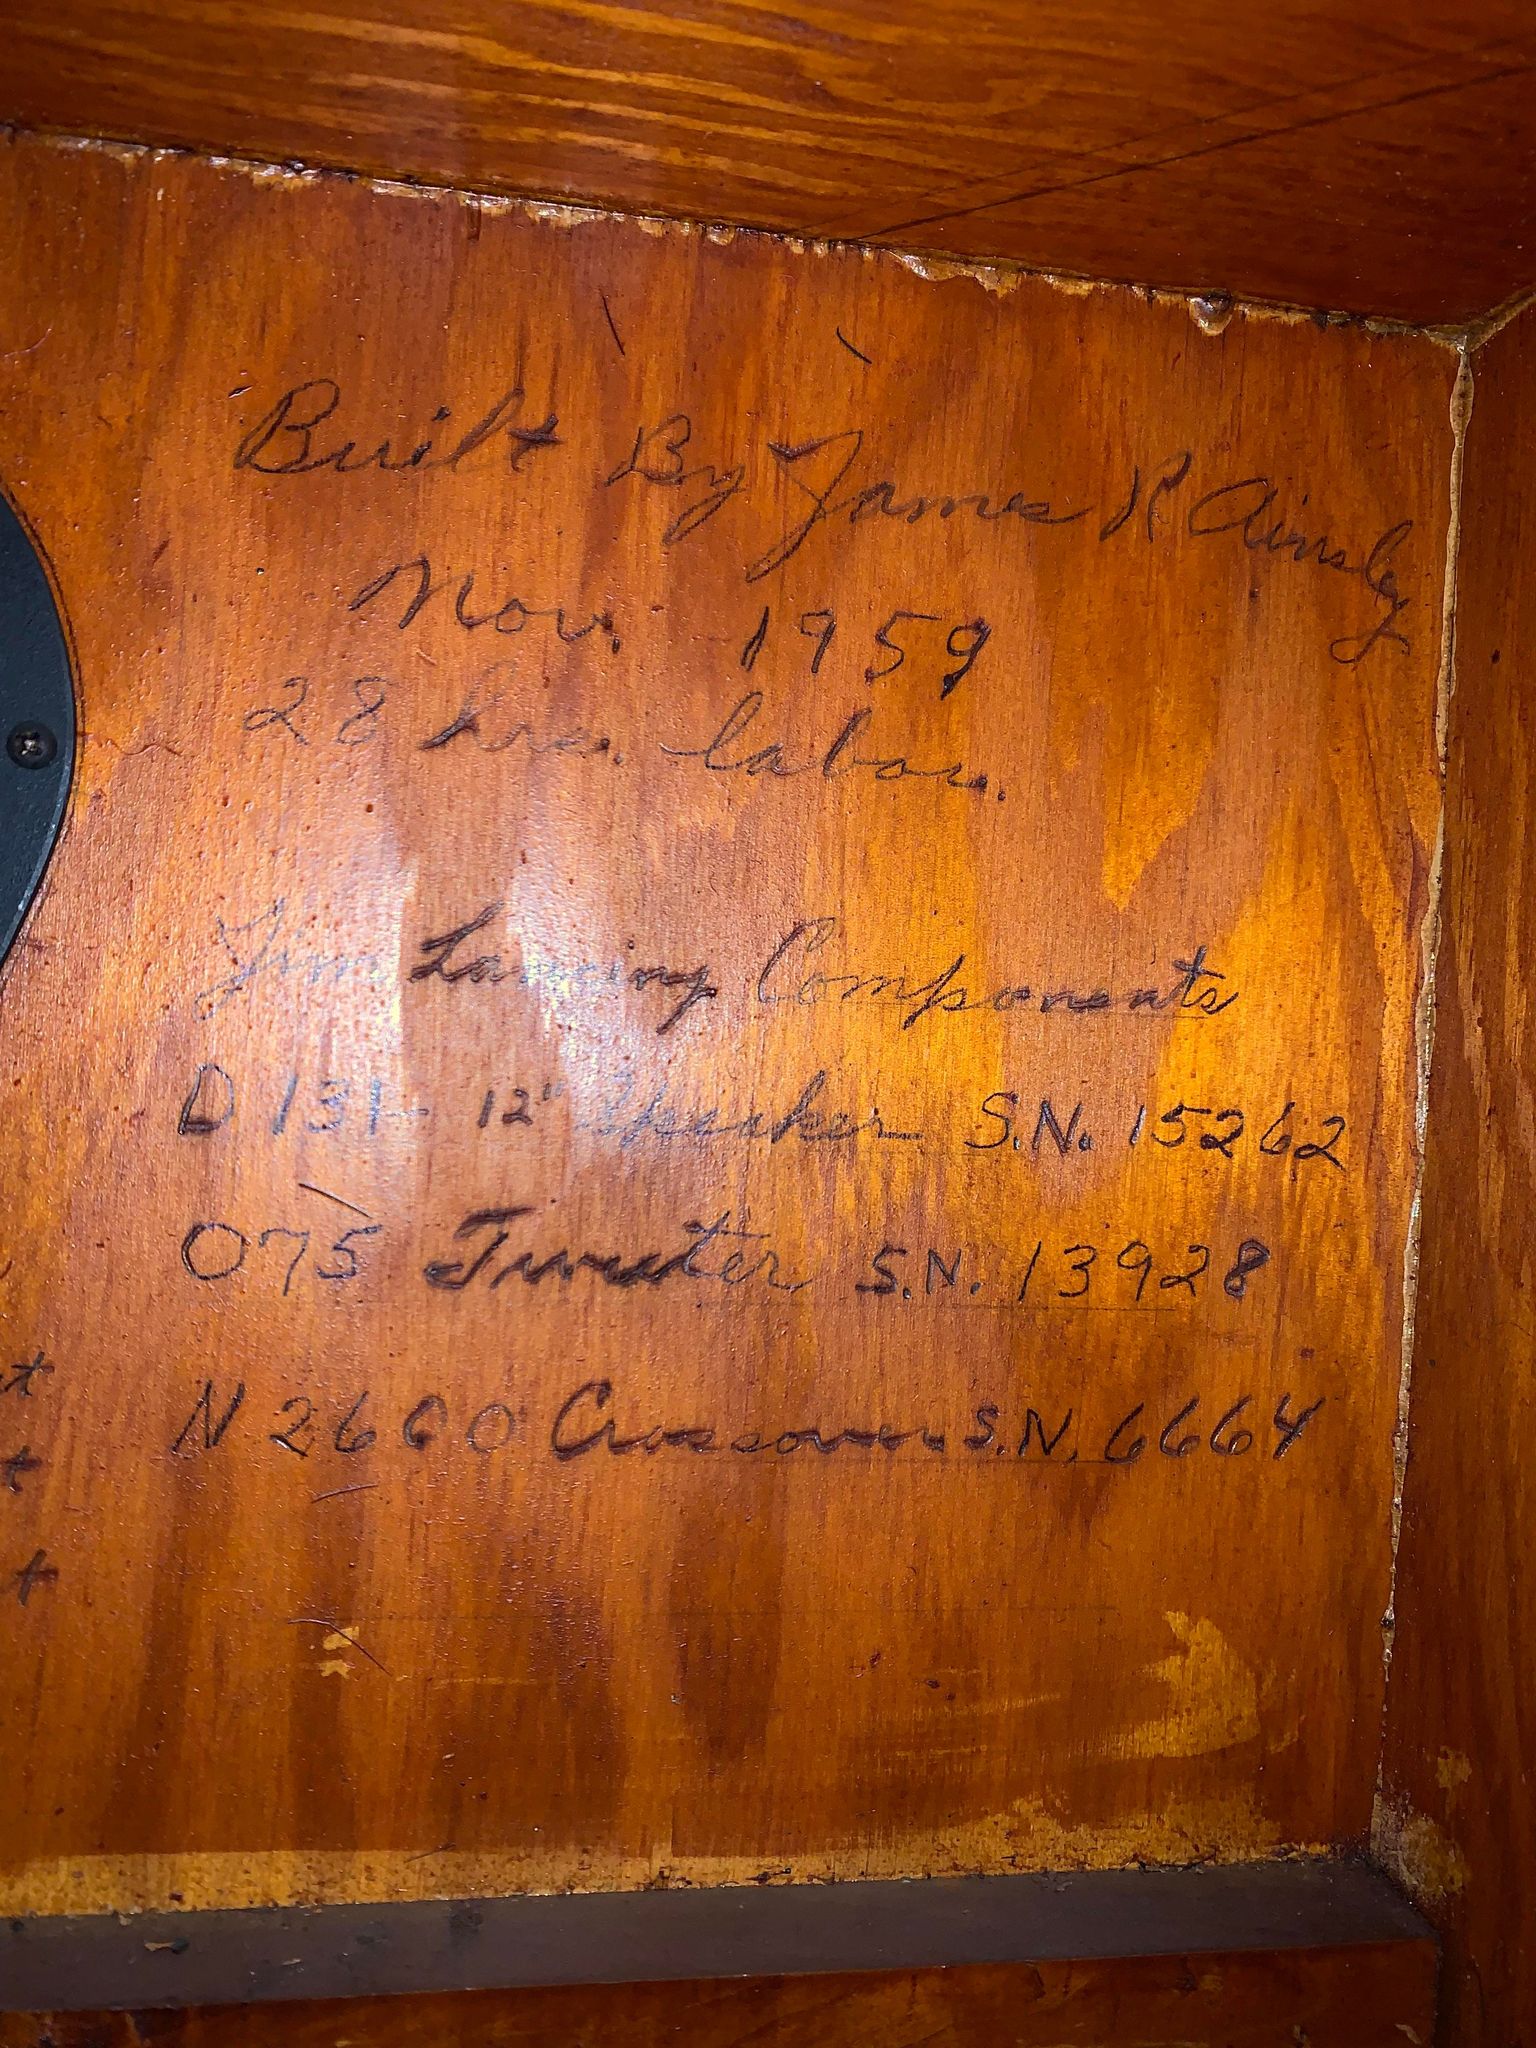 Built By James R Ainsley
Nov. 1959
28 hrs. labor.
Jim Lansing Components
D 131 - 12" Speaker S.N. 15262
075 Tweeter S.N. 13928
N 2600 Crossover S.N. 6664